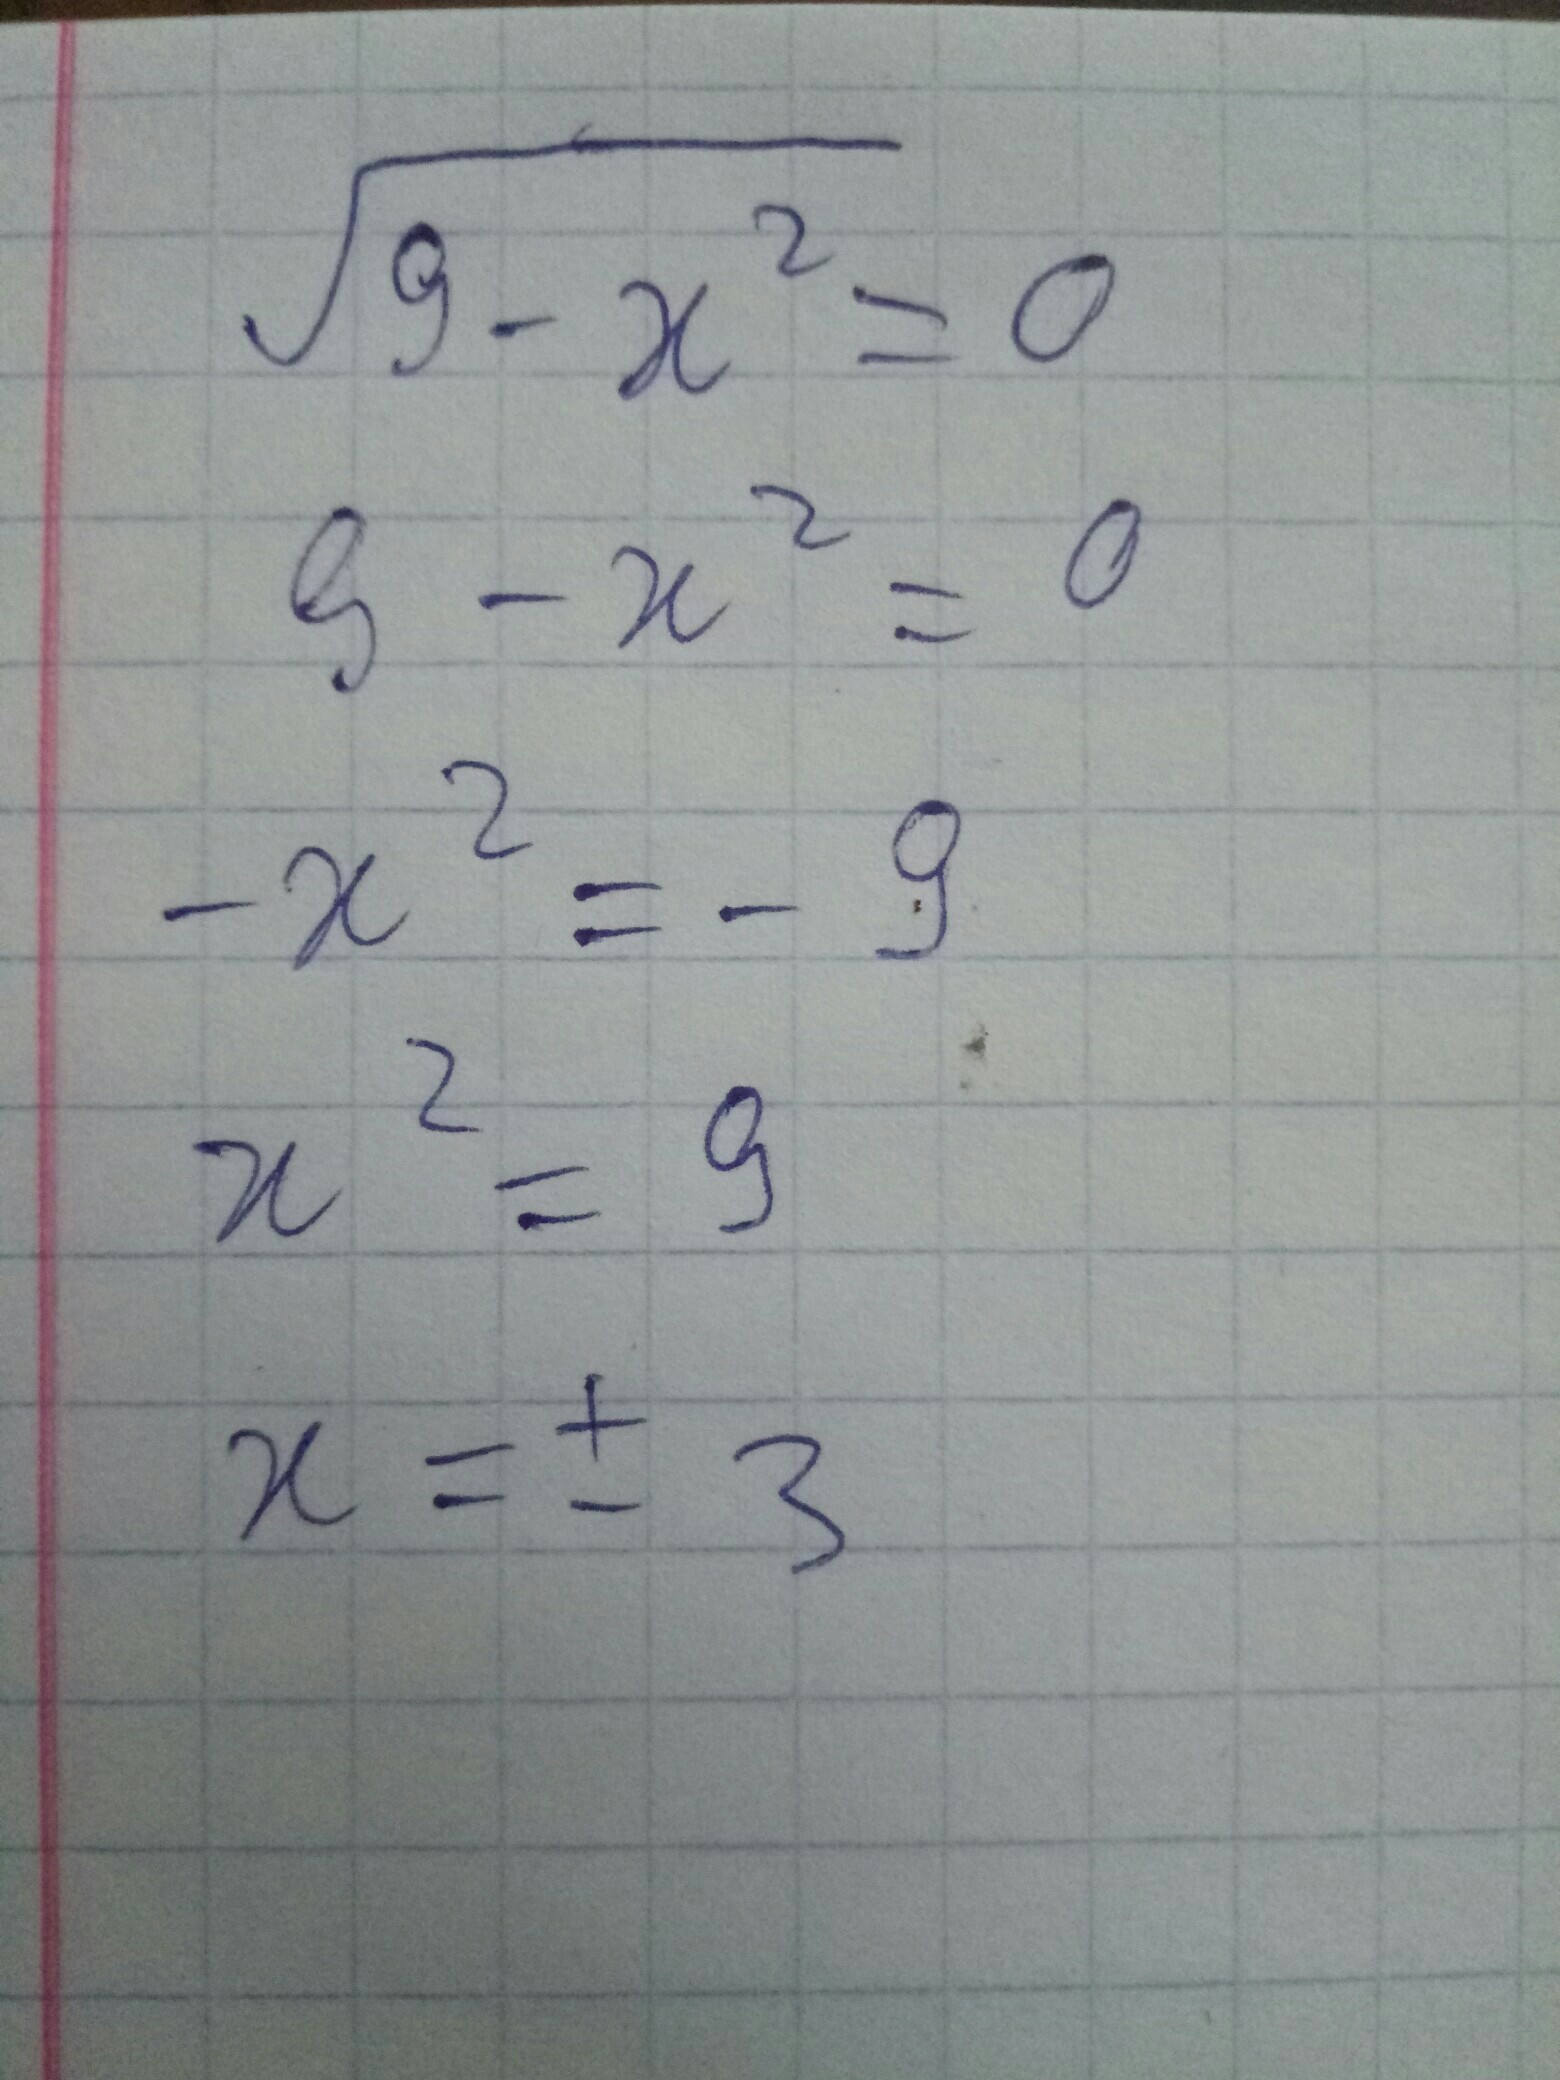 √(9 - x²) = 0
9 - x² = 0
-x² = - 9
x² = 9
x = ± 3